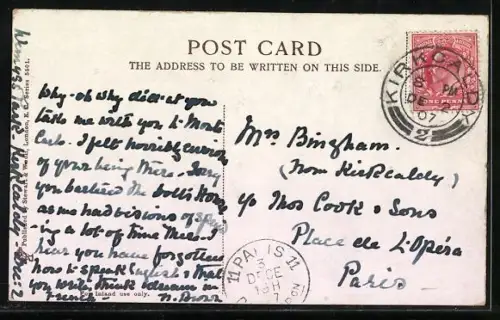 POST CARD
THE ADDRESS TO BE WRITTEN ON THIS SIDE.
Why - oh why didn't you
take me with you to Monte
Carlo. I felt horribly envious
of your being there. Sorry
you
as we had visions of
-ing a lot of time there. I
hear you have forgotten
how to speak English & that
you write, think & dream in
French - N. Brown
For inland use only.
Mrs Bingham.
(from Kirkcaldy)
c/o Mess Cook & Sons
Place de L'Opéra
Paris.
KIRKCALDY
PM
DE 2
07
2
ONE PENNY
11 PARIS 11
3
DECE
19H
Kirkcaldy. Dec: 2